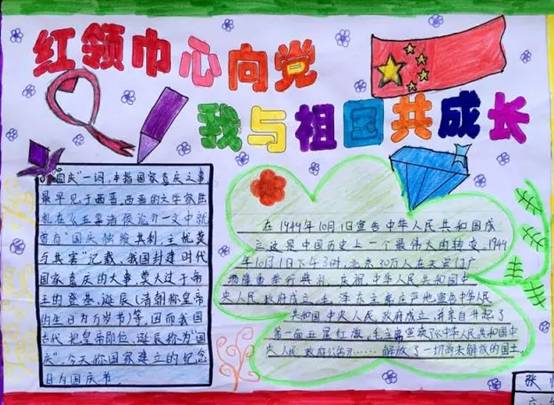 红领巾心向党
我与祖国共成长
"国庆"一词，本指国家喜庆之事
最早见于西晋。西晋的文学家陆
机在《五等诸侯论》一文中就
曾有"国庆独飨其利，主忧莫
与其害"记载、我国封建时代
国家喜庆的大事，莫大过于帝
王的登基、诞辰（清朝称皇帝
的生日为万岁节）等，因而我国
古代把皇帝即位、诞辰称为"国
庆"。今天称国家建立的纪念
日为国庆节。
在1949年10月1日宣告中华人民共和国成
立这是中国历史上一个最伟大的转变。1949
年10月1日下午3时，北京30万人在天安门广
场隆重举行典礼，庆祝中华人民共和国中
央人民政府成立。毛泽东主席庄严地宣告中华人民
共和国中央人民政府成立，并亲自升起了
第一面五星红旗。毛主席宣读了《中华人民共和国中
央人民政府公告》……解放了一切尚未解放的国土
张
六